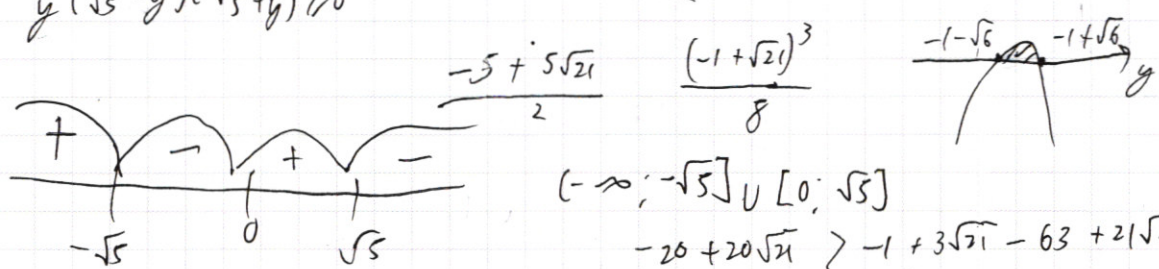 y(√5 - y)(√5 + y) ≥ 0
(-5 + 5√21)/2
(-1 + √21)^3/8
-1-√6 -1+√6
y
+ - + -
-√5 0 √5
(-∞; -√5] ∪ [0; √5]
-20 + 20√21 > -1 + 3√21 - 63 + 21√